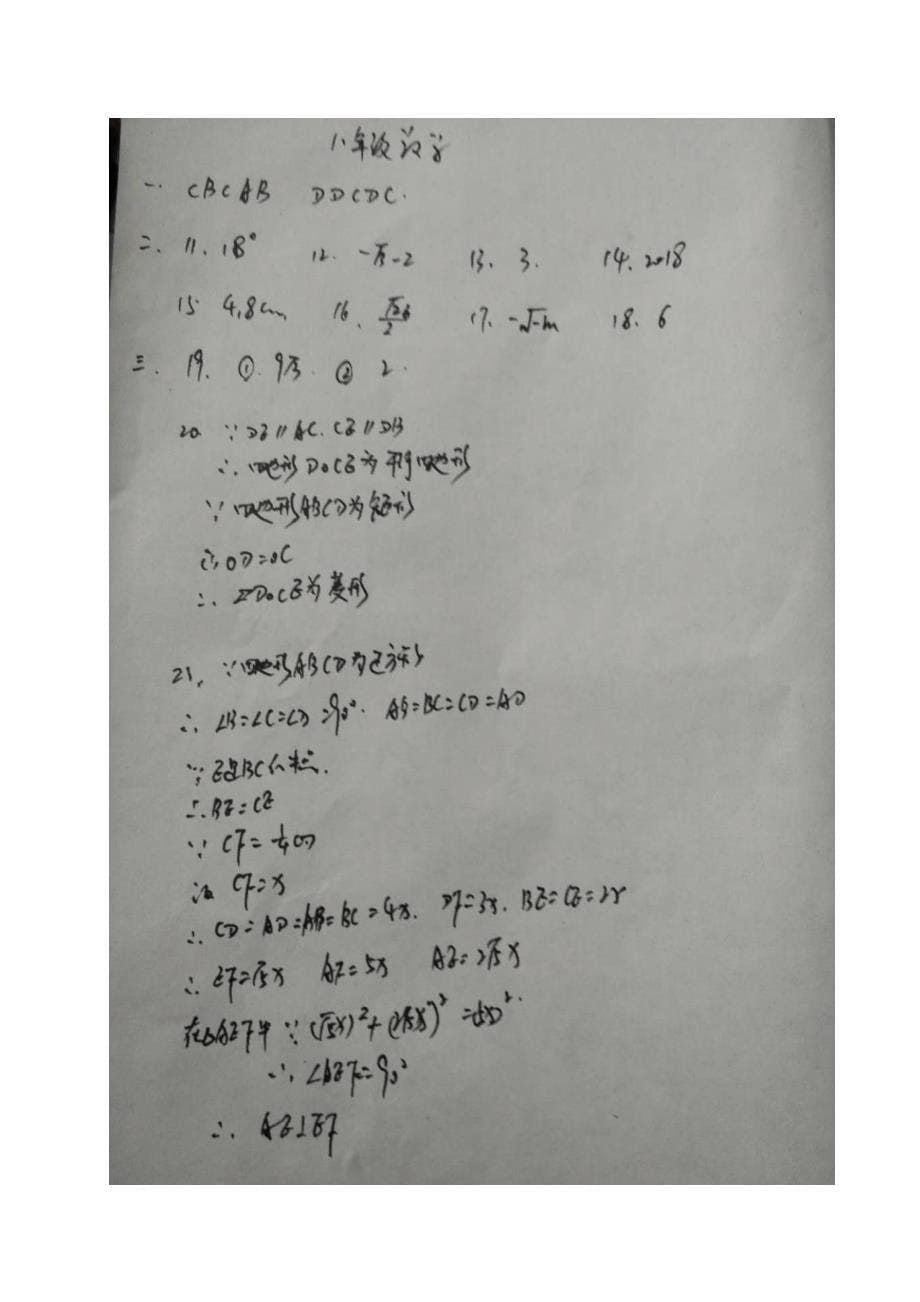 八年级数学
一. CBCAB DDCDC.
二. 11. 18° 12. -√3-2 13. 3. 14. 2018
15 4.8cm 16. 17. -√-m 18. 6
三. 19. ① 9√3. ② 2.
20 ∵DE∥AC. CE∥DB
∴四边形DOCE为平行四边形
∵四边形ABCD为矩形
∴OD=OC
∴ DOCE为菱形
21. ∵四边形ABCD为正方形
∴ ∠B=∠C=∠D=90°. AB=BC=CD=AD
∵E是BC的中点.
∴BE=CE
∵ CF=¼CD
设 CF=x
∴ CD=AD=AB=BC=4x. DF=3x. BE=CE=2x
∴ EF=√5x AF=5x AE=2√5x
在△AEF中 ∵(√5x)²+(2√5x)²=(5x)².
∴ ∠AEF=90°
∴ AE⊥EF